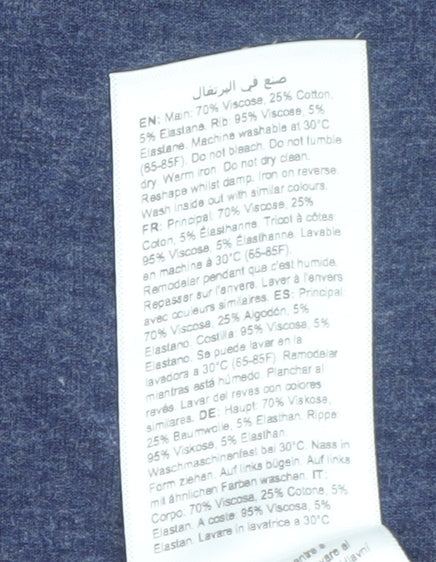 صنع في البرتغال
EN: Main: 70% Viscose, 25% Cotton,
5% Elastane. Rib: 95% Viscose, 5%
Elastane. Machine washable at 30°C
(65-85F). Do not bleach. Do not tumble
dry. Warm iron. Do not dry clean.
Reshape whilst damp. Iron on reverse.
Wash inside out with similar colours.
FR: Principal: 70% Viscose, 25%
Coton, 5% Élasthanne. Tricot à côtes:
95% Viscose, 5% Élasthanne. Lavable
en machine à 30°C (65-85F).
Remodeler pendant que c'est humide.
Repasser sur l'envers. Laver à l'envers
avec couleurs similaires. ES: Principal:
70% Viscosa, 25% Algodón, 5%
Elastano. Costilla: 95% Viscosa, 5%
Elastano. Se puede lavar en la
lavadora a 30°C (65-85F). Remodelar
mientras está húmedo. Planchar al
revés. Lavar del reves con colores
similares. DE: Haupt: 70% Viskose,
25% Baumwolle, 5% Elasthan. Rippe:
95% Viskose, 5% Elasthan.
Waschmaschinenfest bei 30°C. Nass in
Form ziehen. Auf links bügeln. Auf links
mit ähnlichen Farben waschen. IT:
Corpo: 70% Viscosa, 25% Cotone, 5%
Elastan. A coste: 95% Viscosa, 5%
Elastan. Lavare in lavatrice a 30°C